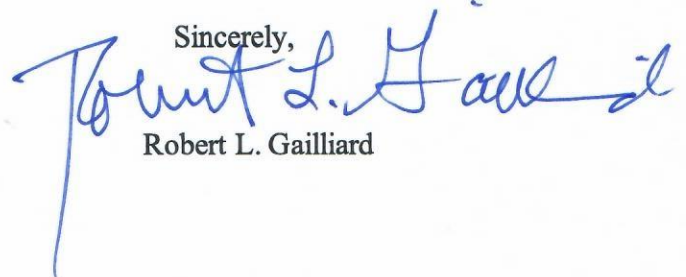 Sincerely,
Robert L. Gailliard
Robert L. Gailliard